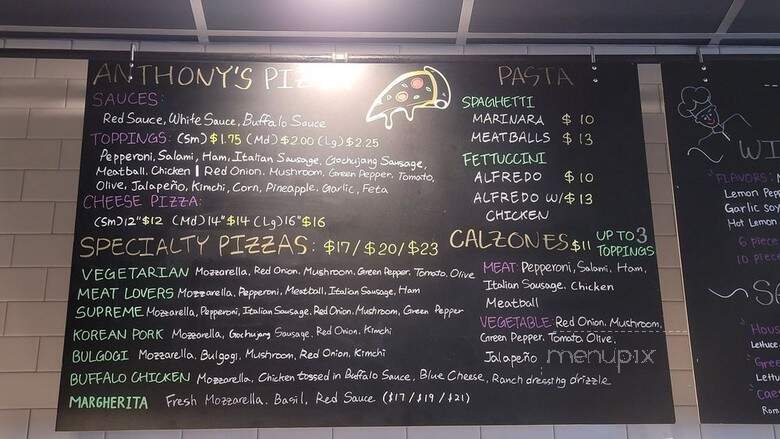 ANTHONY'S
SAUCES:
Red Sauce, White Sauce, Buffalo Sauce
TOPPINGS: (Sm) $1.75 (Md) $2.00 (Lg) $2.25
Pepperoni, Salami, Ham, Italian Sausage, Gochujang Sausage,
Meatball, Chicken | Red Onion, Mushroom, Green Pepper, Tomato,
Olive, Jalapeño, Kimchi, Corn, Pineapple, Garlic, Feta
CHEESE PIZZA:
(Sm) 12" $12 (Md) 14" $14 (Lg) 16" $16
SPECIALTY PIZZAS: $17/$20/$23
VEGETARIAN Mozzarella, Red Onion, Mushroom, Green Pepper, Tomato, Olive
MEAT LOVERS Mozzarella, Pepperoni, Meatball, Italian Sausage, Ham
SUPREME Mozzarella, Pepperoni, Italian Sausage, Red Onion, Mushroom, Green Pepper
KOREAN PORK Mozzarella, Gochujang Sausage, Red Onion, Kimchi
BULGOGI Mozzarella, Bulgogi, Mushroom, Red Onion, Kimchi
BUFFALO CHICKEN Mozzarella, Chicken tossed in Buffalo Sauce, Blue Cheese, Ranch dressing drizzle
MARGHERITA Fresh Mozzarella, Basil, Red Sauce ($17/$19/$21)
PASTA
SPAGHETTI
MARINARA $10
MEATBALLS $13
FETTUCCINI
ALFREDO $10
ALFREDO W/ $13
CHICKEN
CALZONES $11 UP TO 3
TOPPINGS
MEAT: Pepperoni, Salami, Ham,
Italian Sausage, Chicken
Meatball
VEGETABLE: Red Onion, Mushroom,
Green Pepper, Tomato, Olive,
Jalapeño
menupix
FLAVORS:
Lemon Pep
Garlic soy
Hot Lemon
6 piece
10 piece